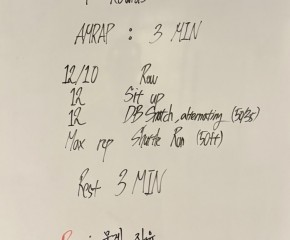 Rounds
AMRAP : 3 MIN
12/10 Row
12 Sit up
12 DB Snatch, alternating (50/35)
Max rep Shuttle Run (50ft)
Rest 3 MIN